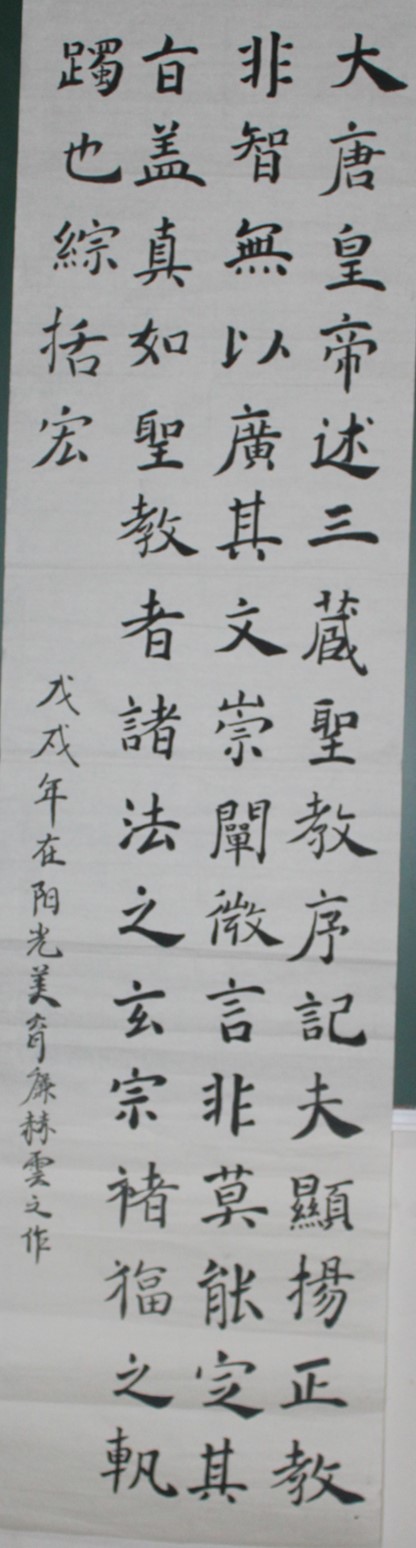 大唐皇帝述三蔵聖教序記夫顯揚正教
非智無以廣其文崇闡微言非莫能定其
旨盖真如聖教者諸法之玄宗褚福之軓
躅也綜括宏
戊戌年在阳光美育廉赫雲之作